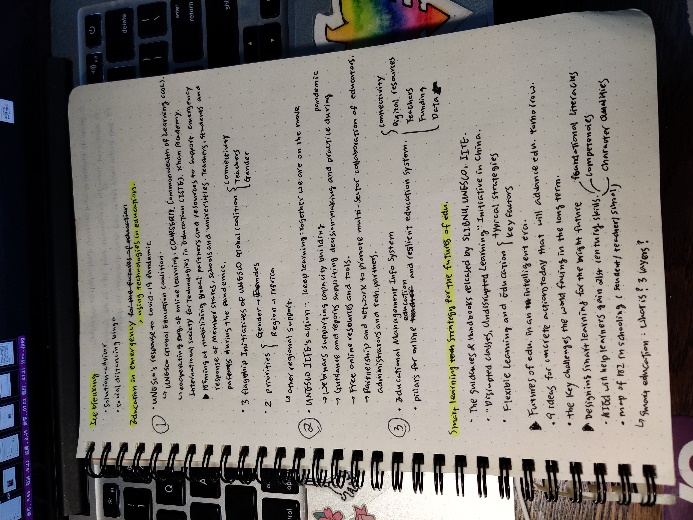 Ice breaking
· Solution-actions
· social distancing bingo
Education in emergency future trends of education
using technologies in education.
① · UNESCO's response to covid-19 pandemic
↳ UNESCO Global Education Coalition.
↳ cooperating orgs of online learning, COURSERA, Commonwealth of Learning (COL),
International Society for Technologies in Education (ISTE), Khan Academy.
▶ Aiming at mobilizing global partners and resources to support emergency
response of member states, schools and universities, teachers, students and
parents during the pandemic.
· 3 flagship initiatives of UNESCO global coalition
Connectivity
Teachers
Gender
2 priorities
Gender → Genders
Region → Africa
↳ other regional support.
② · UNESCO IITE's action: keep learning, together we are on the move
↳ Webinars supporting capacity building
↳ Guidance and reports supporting decision-making and practice during pandemic
↳ Free online resources and tools.
↳ Partnership and network to promote multi-sector collaboration of educators,
administrators and edu partners.
③ · Educational Management Info System
· pillars for online education and resilient education system.
Connectivity
Digital resources
Teachers
Funding
Data
Smart learning strategy for the futures of edu.
· The guidelines & handbooks released by SLIBNU, UNESCO, IITE.
· "Disrupted classes, Undisrupted Learning" Initiative in China.
· Flexible Learning and Education
typical strategies
key factors
▶ Futures of edu. in an intelligent era.
· 9 ideas for concrete actions today that will advance edu. tomorrow.
· the key challenges the world facing in the long term.
▶ Designing smart learning for the bright future
· AI Ed will help learners gain 21st century skills.
foundational literacies
competencies
character qualities
· map of in schooling (student/teacher/school)
↳ Smart education : what is? 3 layers?